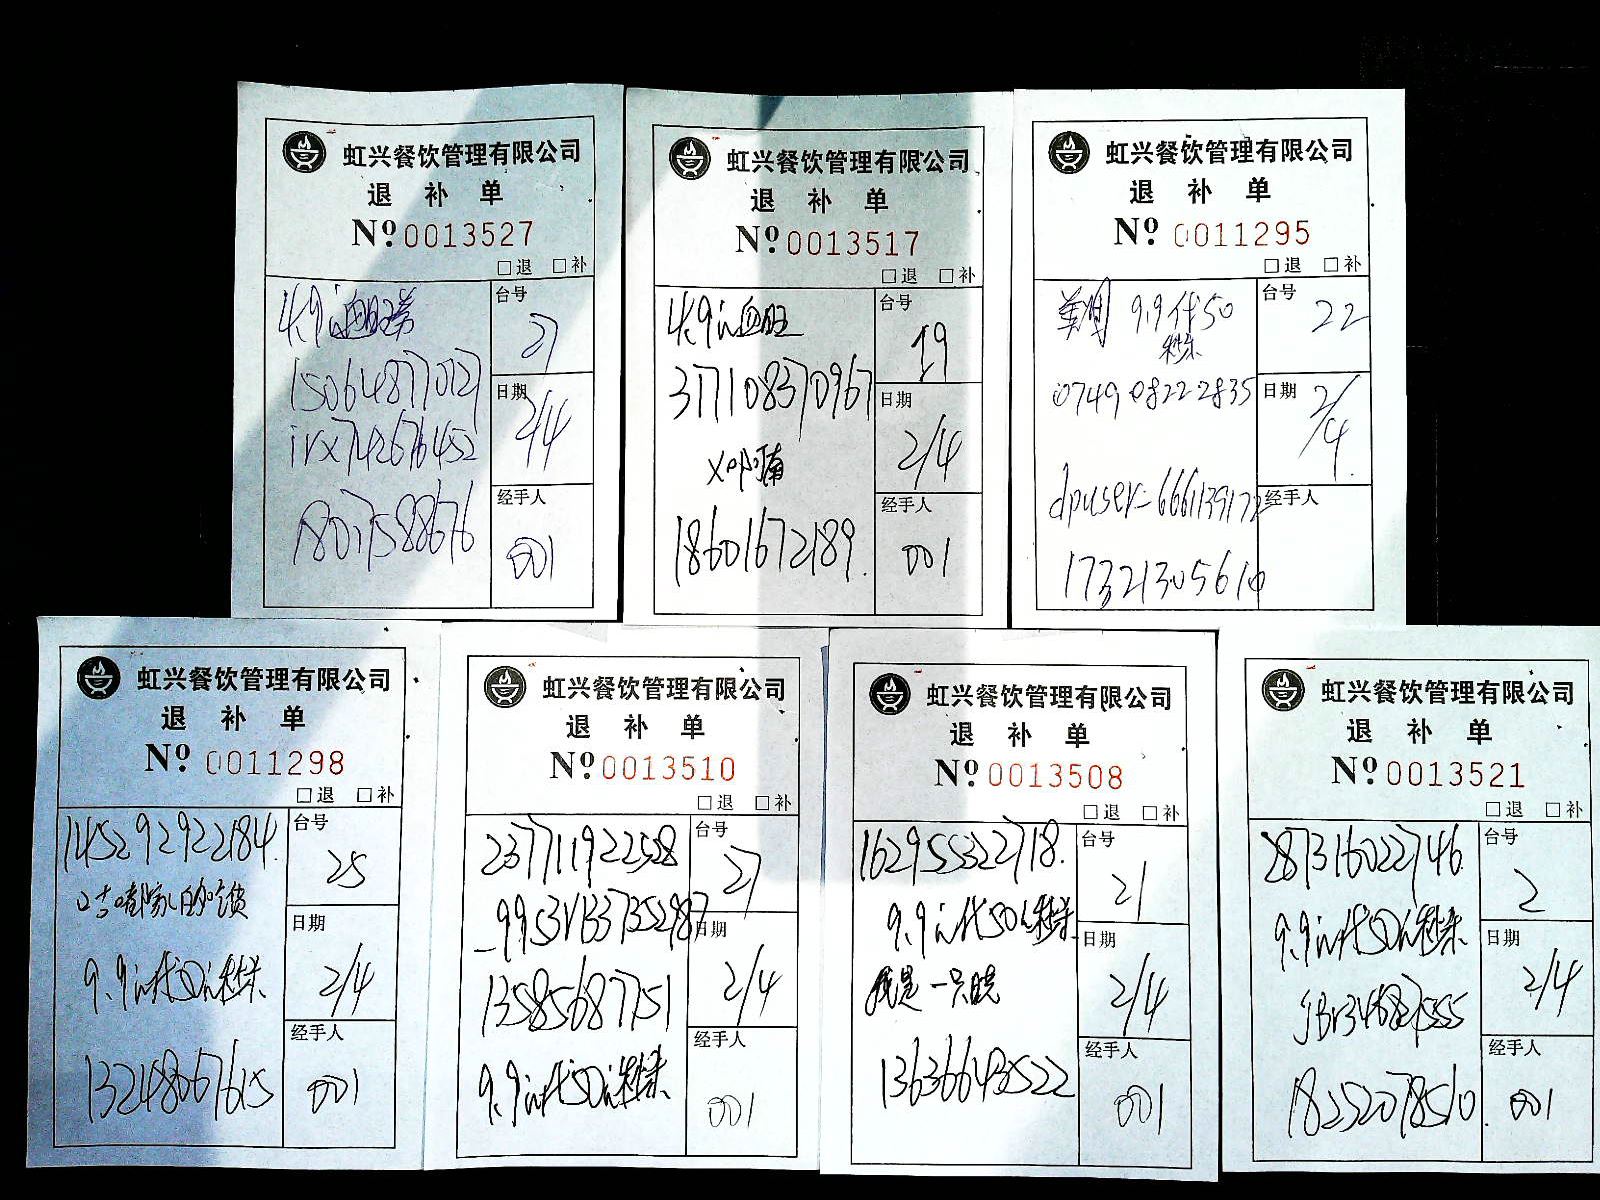 虹兴餐饮管理有限公司
退 补 单
Nº 0013527
□退 □补
台号
27
日期
2/4
经手人
001
4.9元血旺
15064877027
irx742676452
虹兴餐饮管理有限公司
退 补 单
Nº 0013517
□退 □补
4.9元血旺
台号
19
377108370967
日期
2/4
18601672189
经手人
001
虹兴餐饮管理有限公司
退 补 单
Nº 0011295
□退 □补
9.9代50
秒杀
台号
22
0749 08222835
日期
2/4
dpuser=
经手人
虹兴餐饮管理有限公司
退 补 单
Nº 0011298
□退 □补
145292922184
台号
25
日期
9.9元代50元秒杀
2/4
经手人
001
虹兴餐饮管理有限公司
退 补 单
Nº 0013510
□退 □补
237711922528
台号
27
日期
13585687751
2/4
9.9元代50元秒杀
经手人
001
虹兴餐饮管理有限公司
退 补 单
Nº 0013508
□退 □补
162955322718
台号
21
9.9元代50元秒杀
日期
我是一只
2/4
13636643522
经手人
001
虹兴餐饮管理有限公司
退 补 单
Nº 0013521
□退 □补
287316022746
台号
2
9.9元代50元秒杀
日期
2/4
18252078510
经手人
001